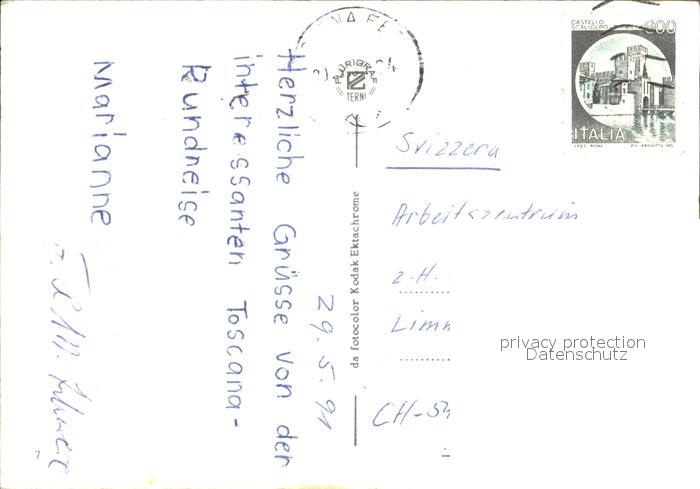 29.5.91
Herzliche Grüsse von der
interessanten Toscana-
Rundreise
Marianne
da fotocolor Kodak Ektachrome
PLURIGRAF
TERNI
CASTELLO
SCALIGERO
600
ITALIA
I.P.Z.S. ROMA
Svizzera
Arbeitszentrum
z.H.
Limm
CH-54
privacy protection
Datenschutz
7